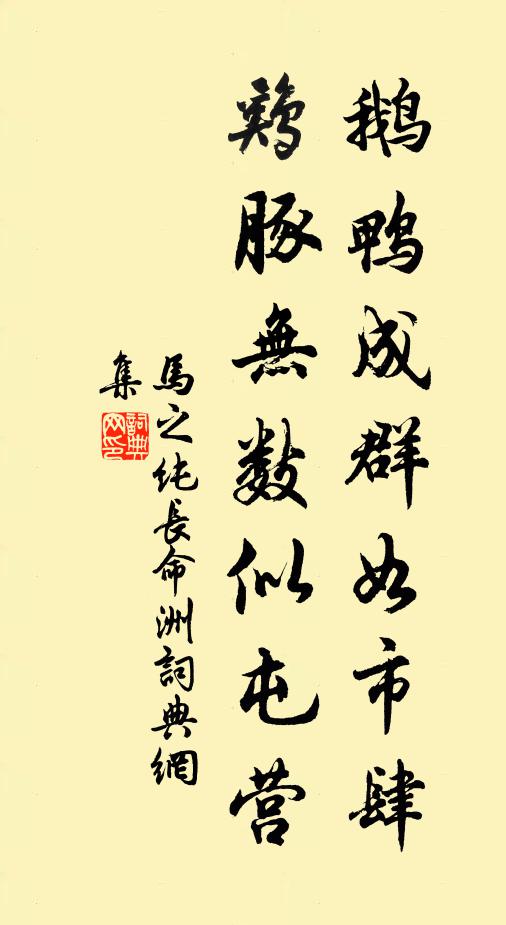 鹅鸭成群如市肆
鷄豚無數似屯营
馬之純長命洲詞典網
集
詞典
网印